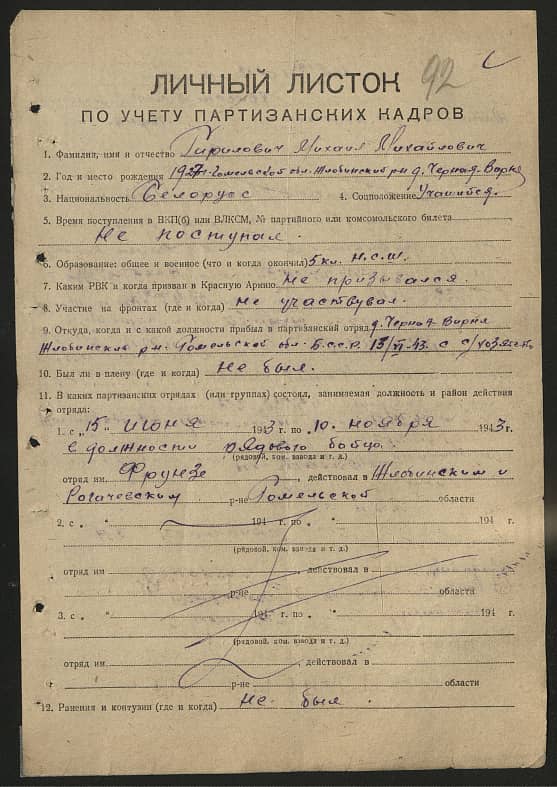 92
ЛИЧНЫЙ ЛИСТОК
ПО УЧЕТУ ПАРТИЗАНСКИХ КАДРОВ
1. Фамилия, имя и отчество Гирилович Михаил Михайлович
2. Год и место рождения 1927 г. Гомельской обл. Жлобинский р-н д. Черная-Вирня
3. Национальность Белорус 4. Соцположение Учащийся.
5. Время поступления в ВКП(б) или ВЛКСМ, № партийного или комсомольского билета
Не поступал.
6. Образование: общее и военное (что и когда окончил) 5 кл. Н.С.Ш.
7. Каким РВК и когда призван в Красную Армию Не призывался.
8. Участие на фронтах (где и когда) Не участвувал.
9. Откуда, когда и с какой должности прибыл в партизанский отряд д. Черная Вирня
Жлобинский р-н. Гомельской обл. Б.С.С.Р. 15/VI-43. с с/хозяйств
10. Был ли в плену (где и когда) Не был.
11. В каких партизанских отрядах (или группах) состоял, занимаемая должность и район действия
отряда:
1. с „15" июня 1943 г. по „10. ноября 1943 г.
в должности рядового бойца.
(рядовой, ком. взвода и т. д.)
отряд им. Фрунзе, действовал в Жлобинским и
Рогачевским р-не Гомельской области
2. с „ " 194 г. по „ " 194 г.
(рядовой, ком. взвода и т. д.)
отряд им , действовал в
р-не области
3. с „ " 194 г. по „ " 194 г.
(рядовой, ком. взвода и т. д.)
отряд им , действовал в
р-не области
12. Ранения и контузии (где и когда) Не был.